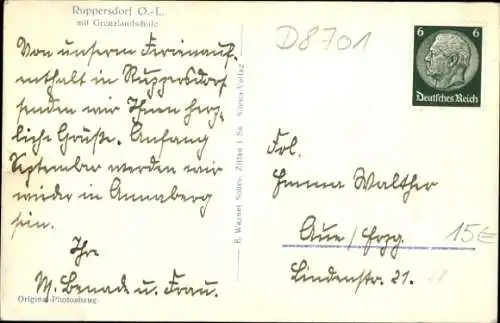 Ruppersdorf O.-L.
mit Grenzlandschule
D8701
6 6
Deutsches Reich
Von unserm Ferienauf-
enthalt in Ruppersdorf
senden wir Ihnen herz-
liche Grüße. Anfang
September werden wir
wieder in Annaberg
sein.
Ihr
M. Benad u. Frau.
E. Wagner Söhne, Zittau i. Sa.
Frl.
Emma Walther
Aue/Erzg.
Lindenstr. 21.
15€
Original-Photoabzug.